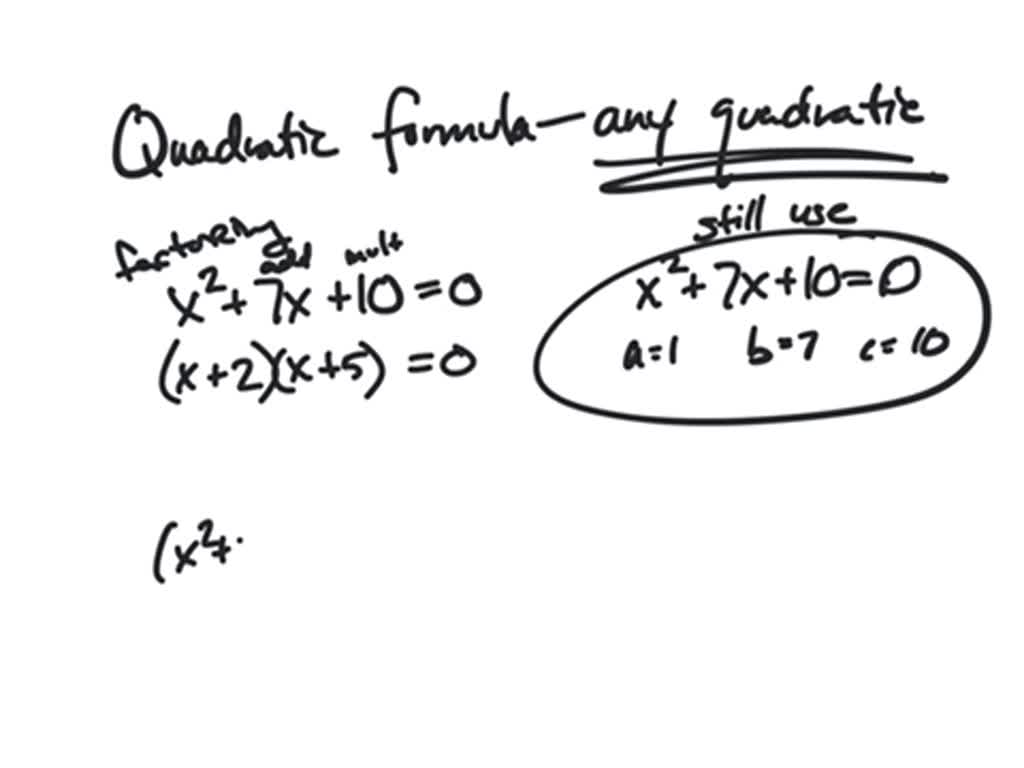 Quadratic formula — any quadratic
factoring add mult
x² + 7x + 10 = 0
(x + 2)(x + 5) = 0
still use
x² + 7x + 10 = 0
a = 1 b = 7 c = 10
(x² + .